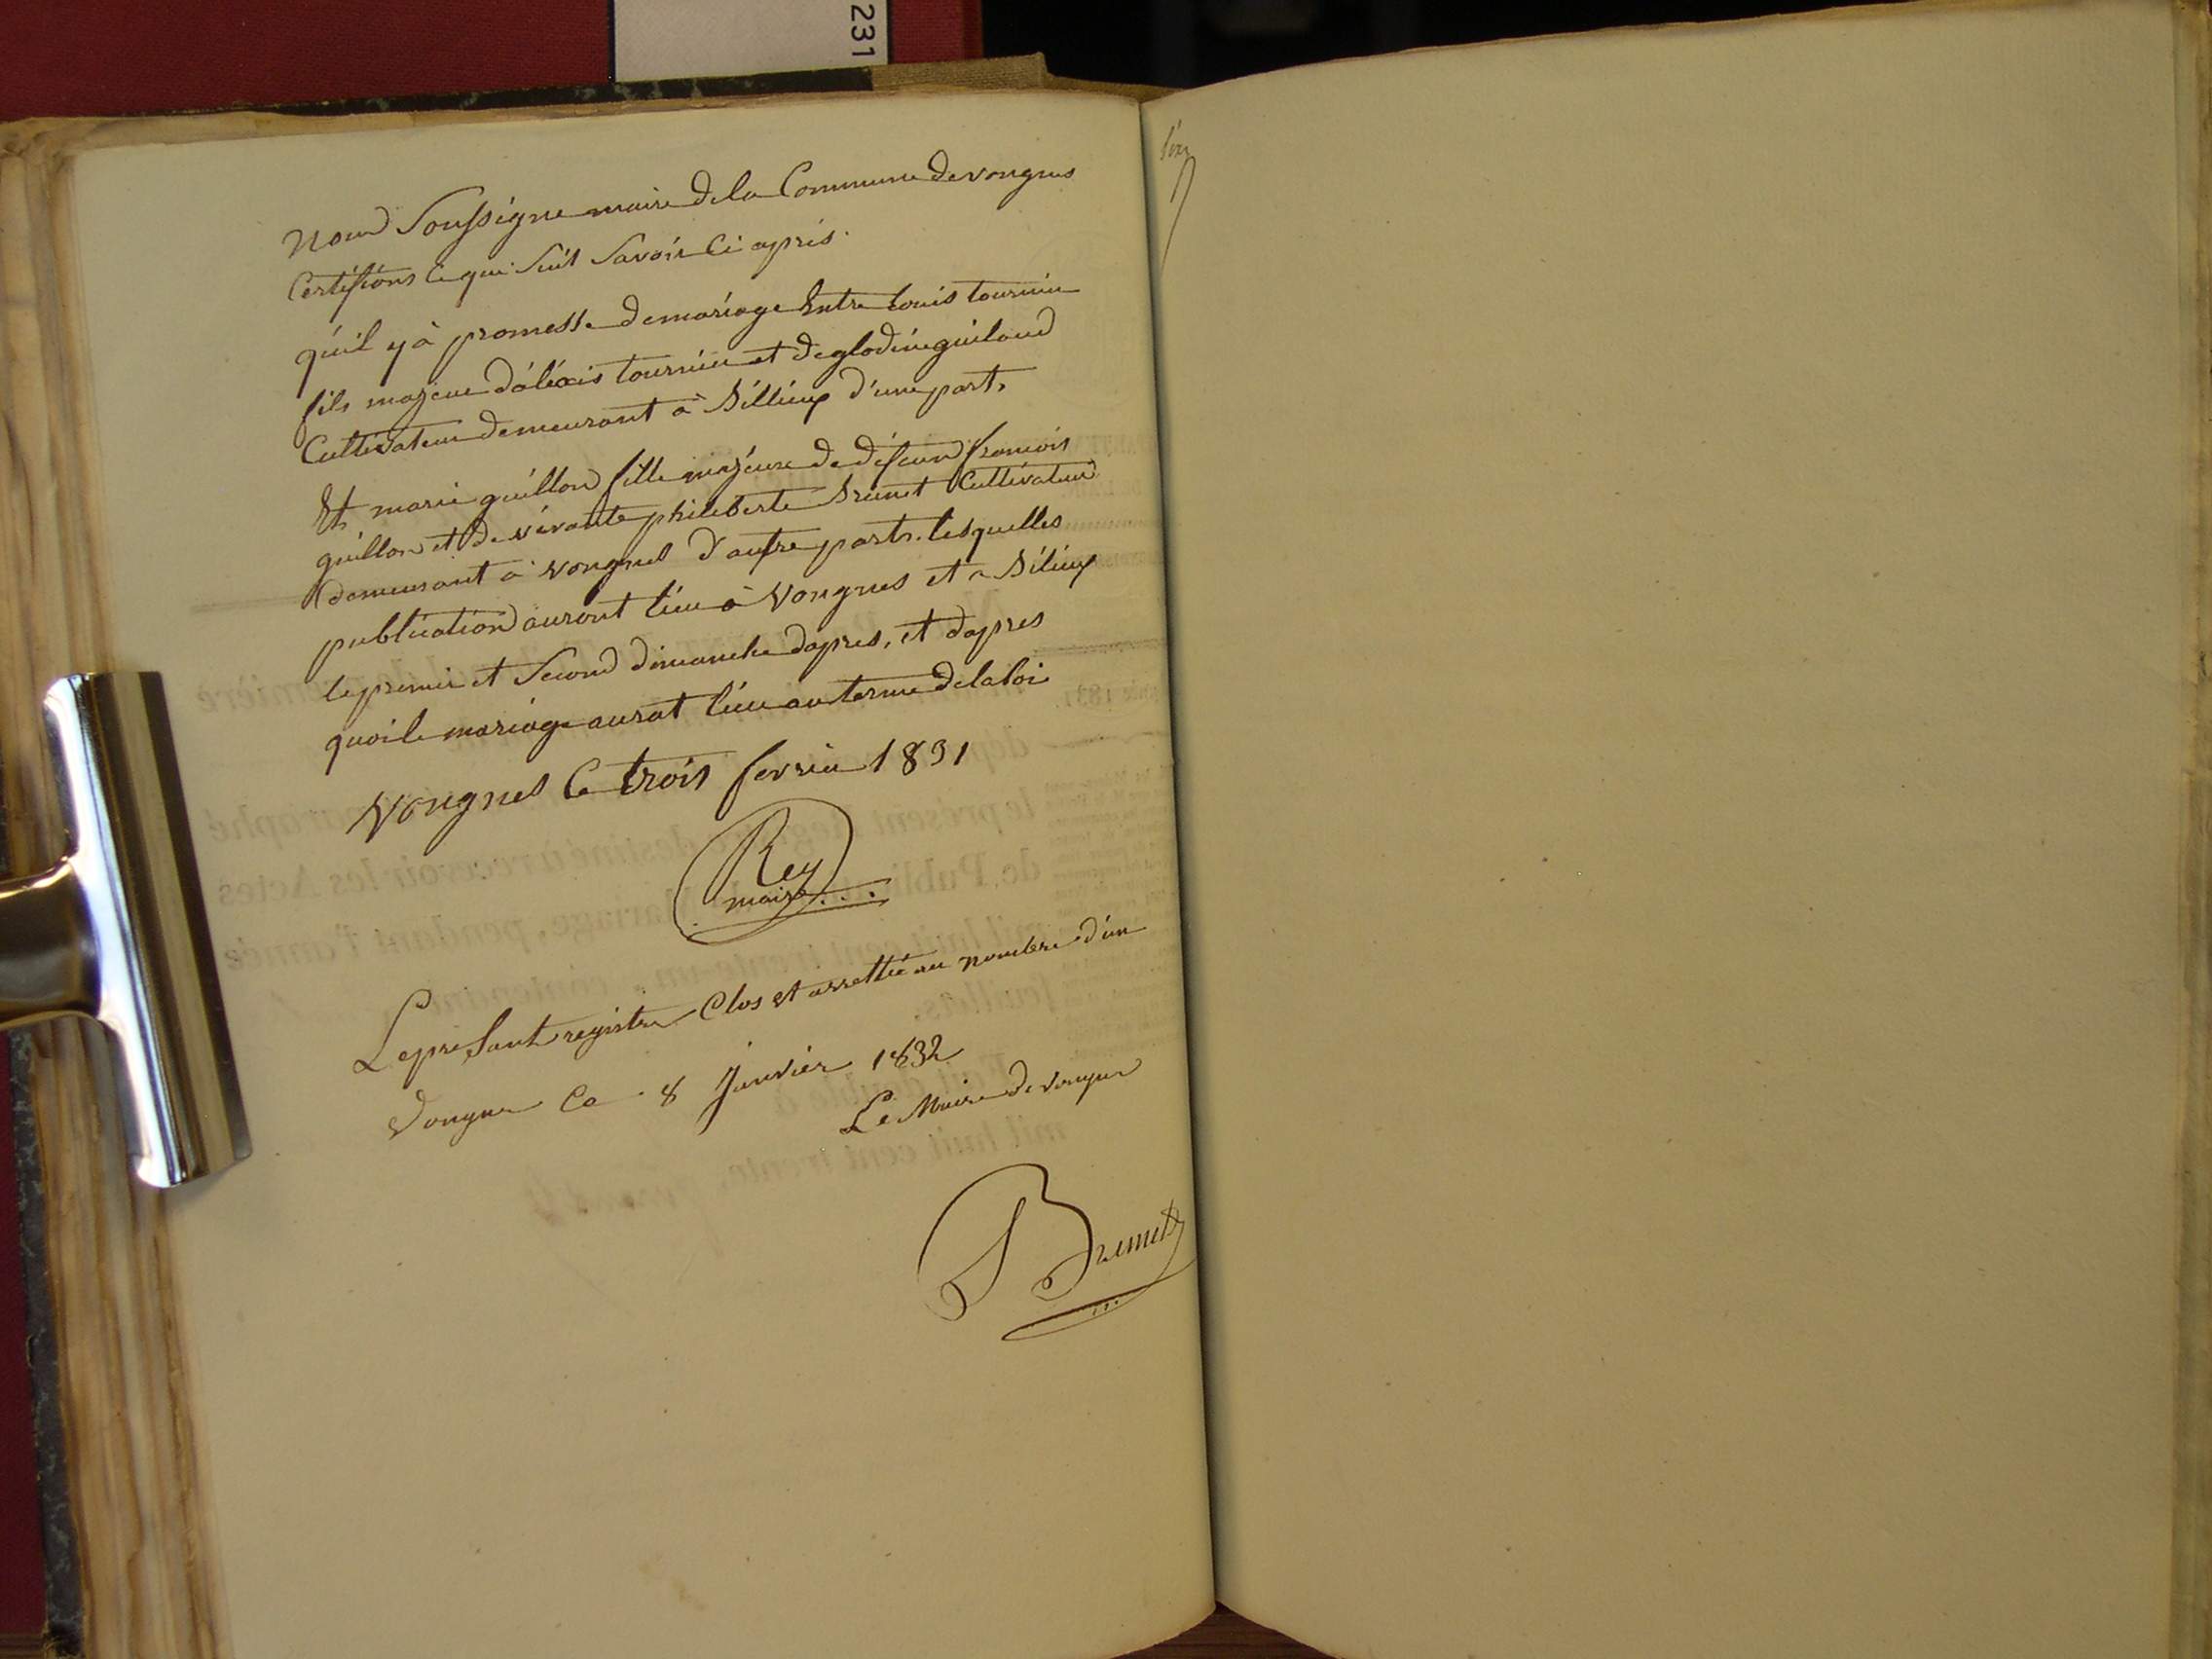 231
Nous Soussigne maire dela Commune devongnes
Certifions Ce qui Suit Savoir Ci après.
qu'il y à promesse demariage Entre Louis tournier
fils majeur d'aléxis tournier et de glodine guiland
Cultivateur demeurant à Billieux d'une part.
Et marie guillon fille majeure de défeund francois
guillon et de vivante philiberte Brunet Cultivateur
demeurant à vongnes d'autre part. lesquelles
publication auront lieu à Vongnes et a Bilieux
le premier et Second dimanche dapres, et dapres
quoi le mariage aurat lieu au terme delaloi
Vongnes Ce trois fevrier 1831
Rey
maire
Le presant registre Clos et arretté au nombre d'un
Vongne Ce 8 Janvier 1832
Le Maire de Vongne
Brunet